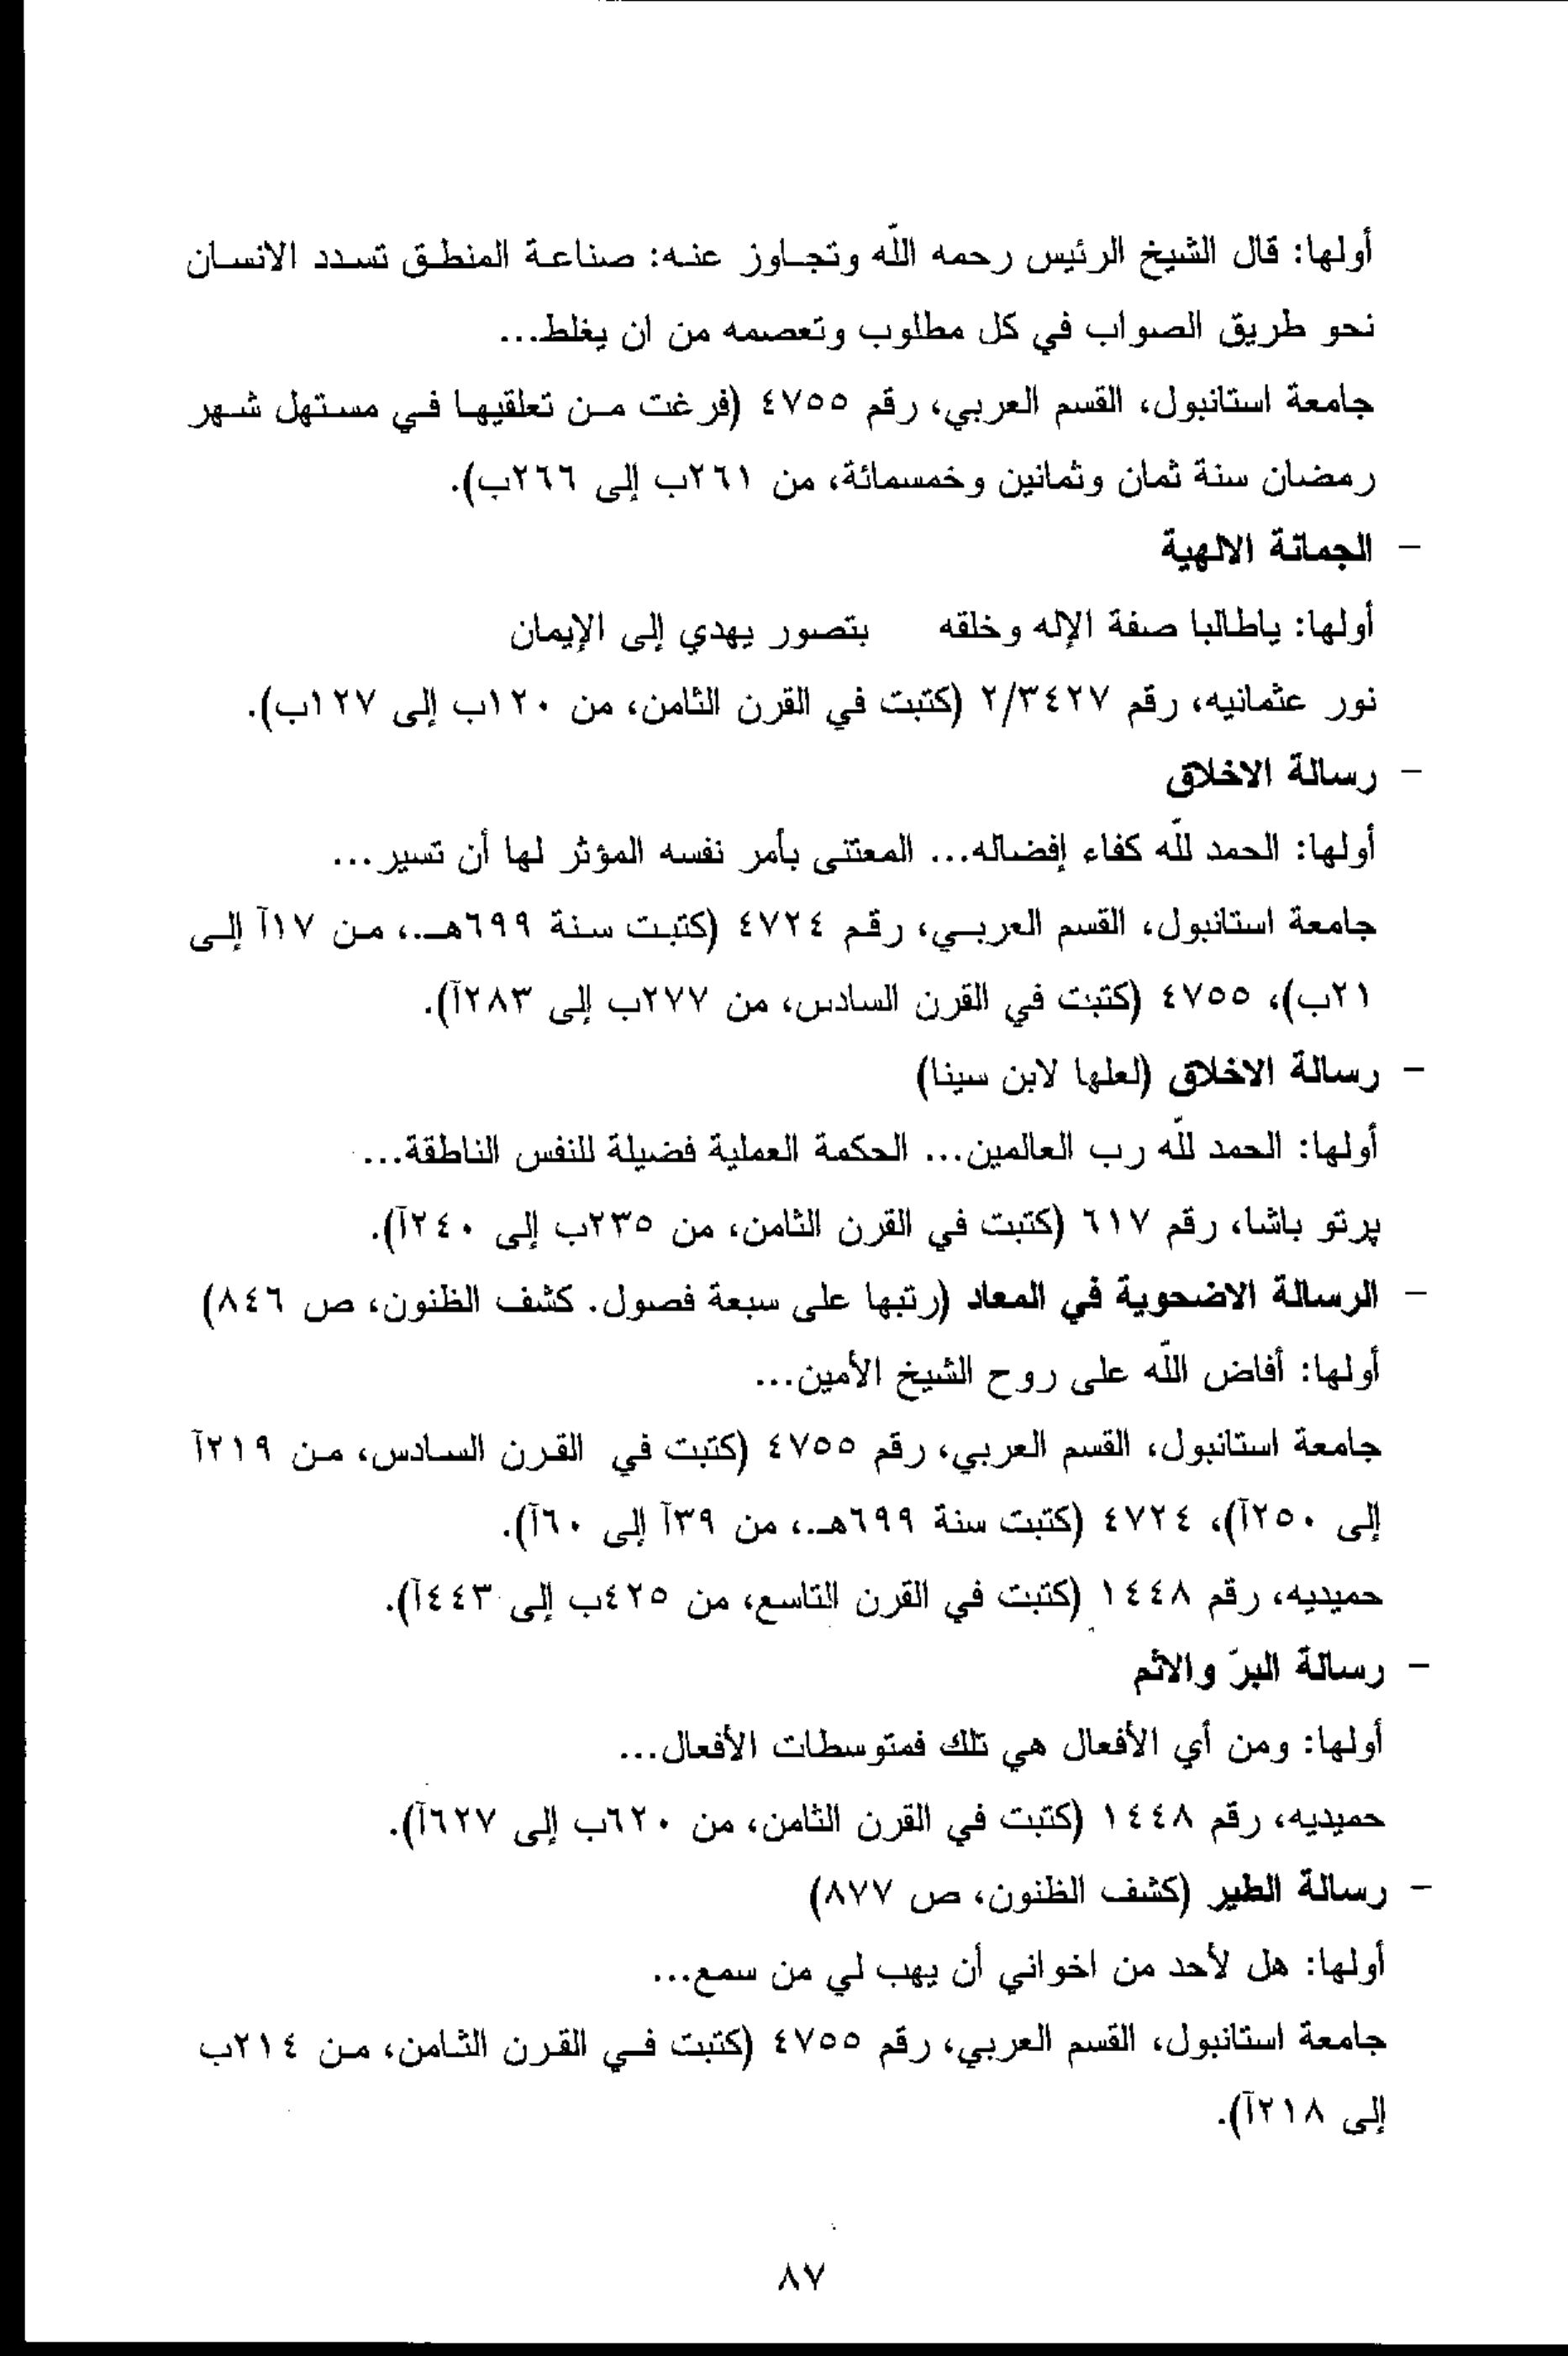 أولها: قال الشيخ الرئيس رحمه الله وتجاوز عنه: صناعة المنطق تسدد الانسان
نحو طريق الصواب في كل مطلوب وتعصمه من ان يغلط...
جامعة استانبول، القسم العربي، رقم ٤٧٥٥ (فرغت من تعلقيها في مستهل شهر
رمضان سنة ثمان وثمانين وخمسمائة، من ٢٦١ب إلى ٢٦٦ب).
- الجمانة الالهية
أولها: ياطالبا صفة الإله وخلقه بتصور يهدي إلى الإيمان
نور عثمانيه، رقم ٢/٣٤٢٧ (كتبت في القرن الثامن، من ١٢٠ب إلى ١٢٧ب).
- رسالة الاخلاق
أولها: الحمد لله كفاء إفضاله... المعتنى بأمر نفسه المؤثر لها أن تسير...
جامعة استانبول، القسم العربي، رقم ٤٧٢٤ (كتبت سنة ٦٩٩هـ.، من ١٧آ إلى
٢١ب)، ٤٧٥٥ (كتبت في القرن السادس، من ٢٧٧ب إلى ٢٨٣آ).
- رسالة الاخلاق (لعلها لابن سينا)
أولها: الحمد لله رب العالمين... الحكمة العملية فضيلة للنفس الناطقة...
پرتو باشا، رقم ٦١٧ (كتبت في القرن الثامن، من ٢٣٥ب إلى ٢٤٠آ).
- الرسالة الاضحوية في المعاد (رتبها على سبعة فصول. كشف الظنون، ص ٨٤٦)
أولها: أفاض الله على روح الشيخ الأمين...
جامعة استانبول، القسم العربي، رقم ٤٧٥٥ (كتبت في القرن السادس، من ٢١٩آ
إلى ٢٥٠آ)، ٤٧٢٤ (كتبت سنة ٦٩٩هـ.، من ٣٩آ إلى ٦٠آ).
حميديه، رقم ١٤٤٨ (كتبت في القرن التاسع، من ٤٢٥ب إلى ٤٤٣آ).
- رسالة البرّ والاثم
أولها: ومن أي الأفعال هي تلك فمتوسطات الأفعال...
حميديه، رقم ١٤٤٨ (كتبت في القرن الثامن، من ٦٢٠ب إلى ٦٢٧آ).
- رسالة الطير (كشف الظنون، ص ٨٧٧)
أولها: هل لأحد من اخواني أن يهب لي من سمع...
جامعة استانبول، القسم العربي، رقم ٤٧٥٥ (كتبت في القرن الثامن، من ٢١٤ب
إلى ٢١٨آ).
٨٧